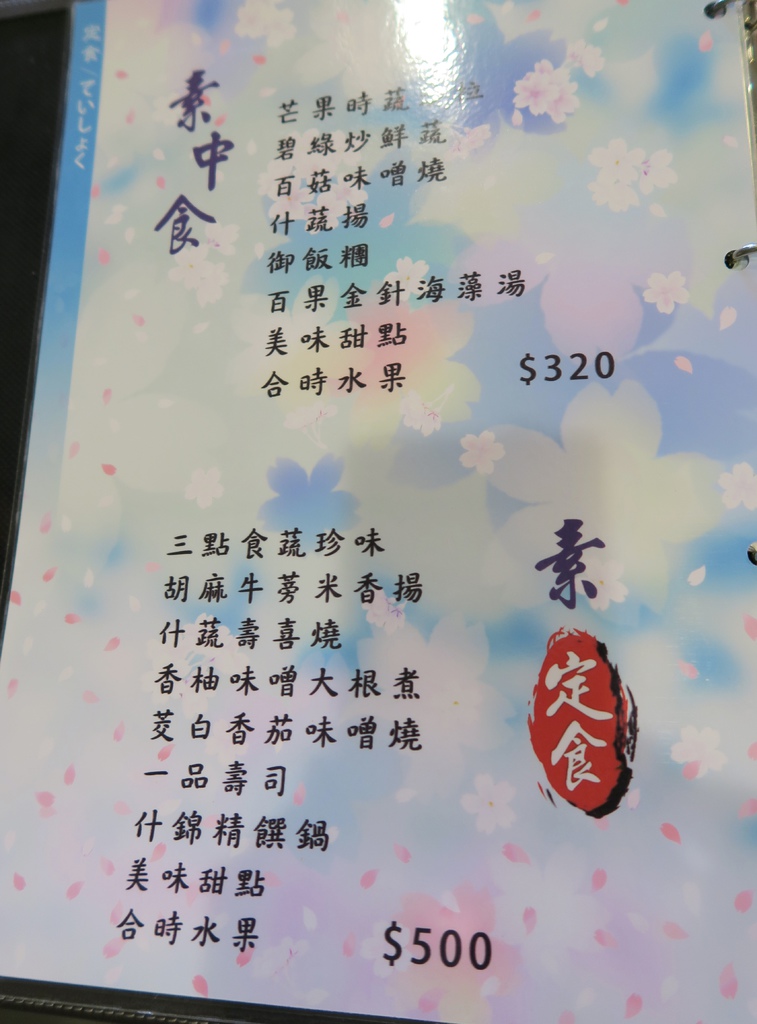 定食/ていしょく
素中食
芒果時蔬
碧綠炒鮮蔬
百菇味噌燒
什蔬揚
御飯糰
百果金針海藻湯
美味甜點
合時水果
$320
素
定食
三點食蔬珍味
胡麻牛蒡米香揚
什蔬壽喜燒
香柚味噌大根煮
茭白香茄味噌燒
一品壽司
什錦精饌鍋
美味甜點
合時水果
$500